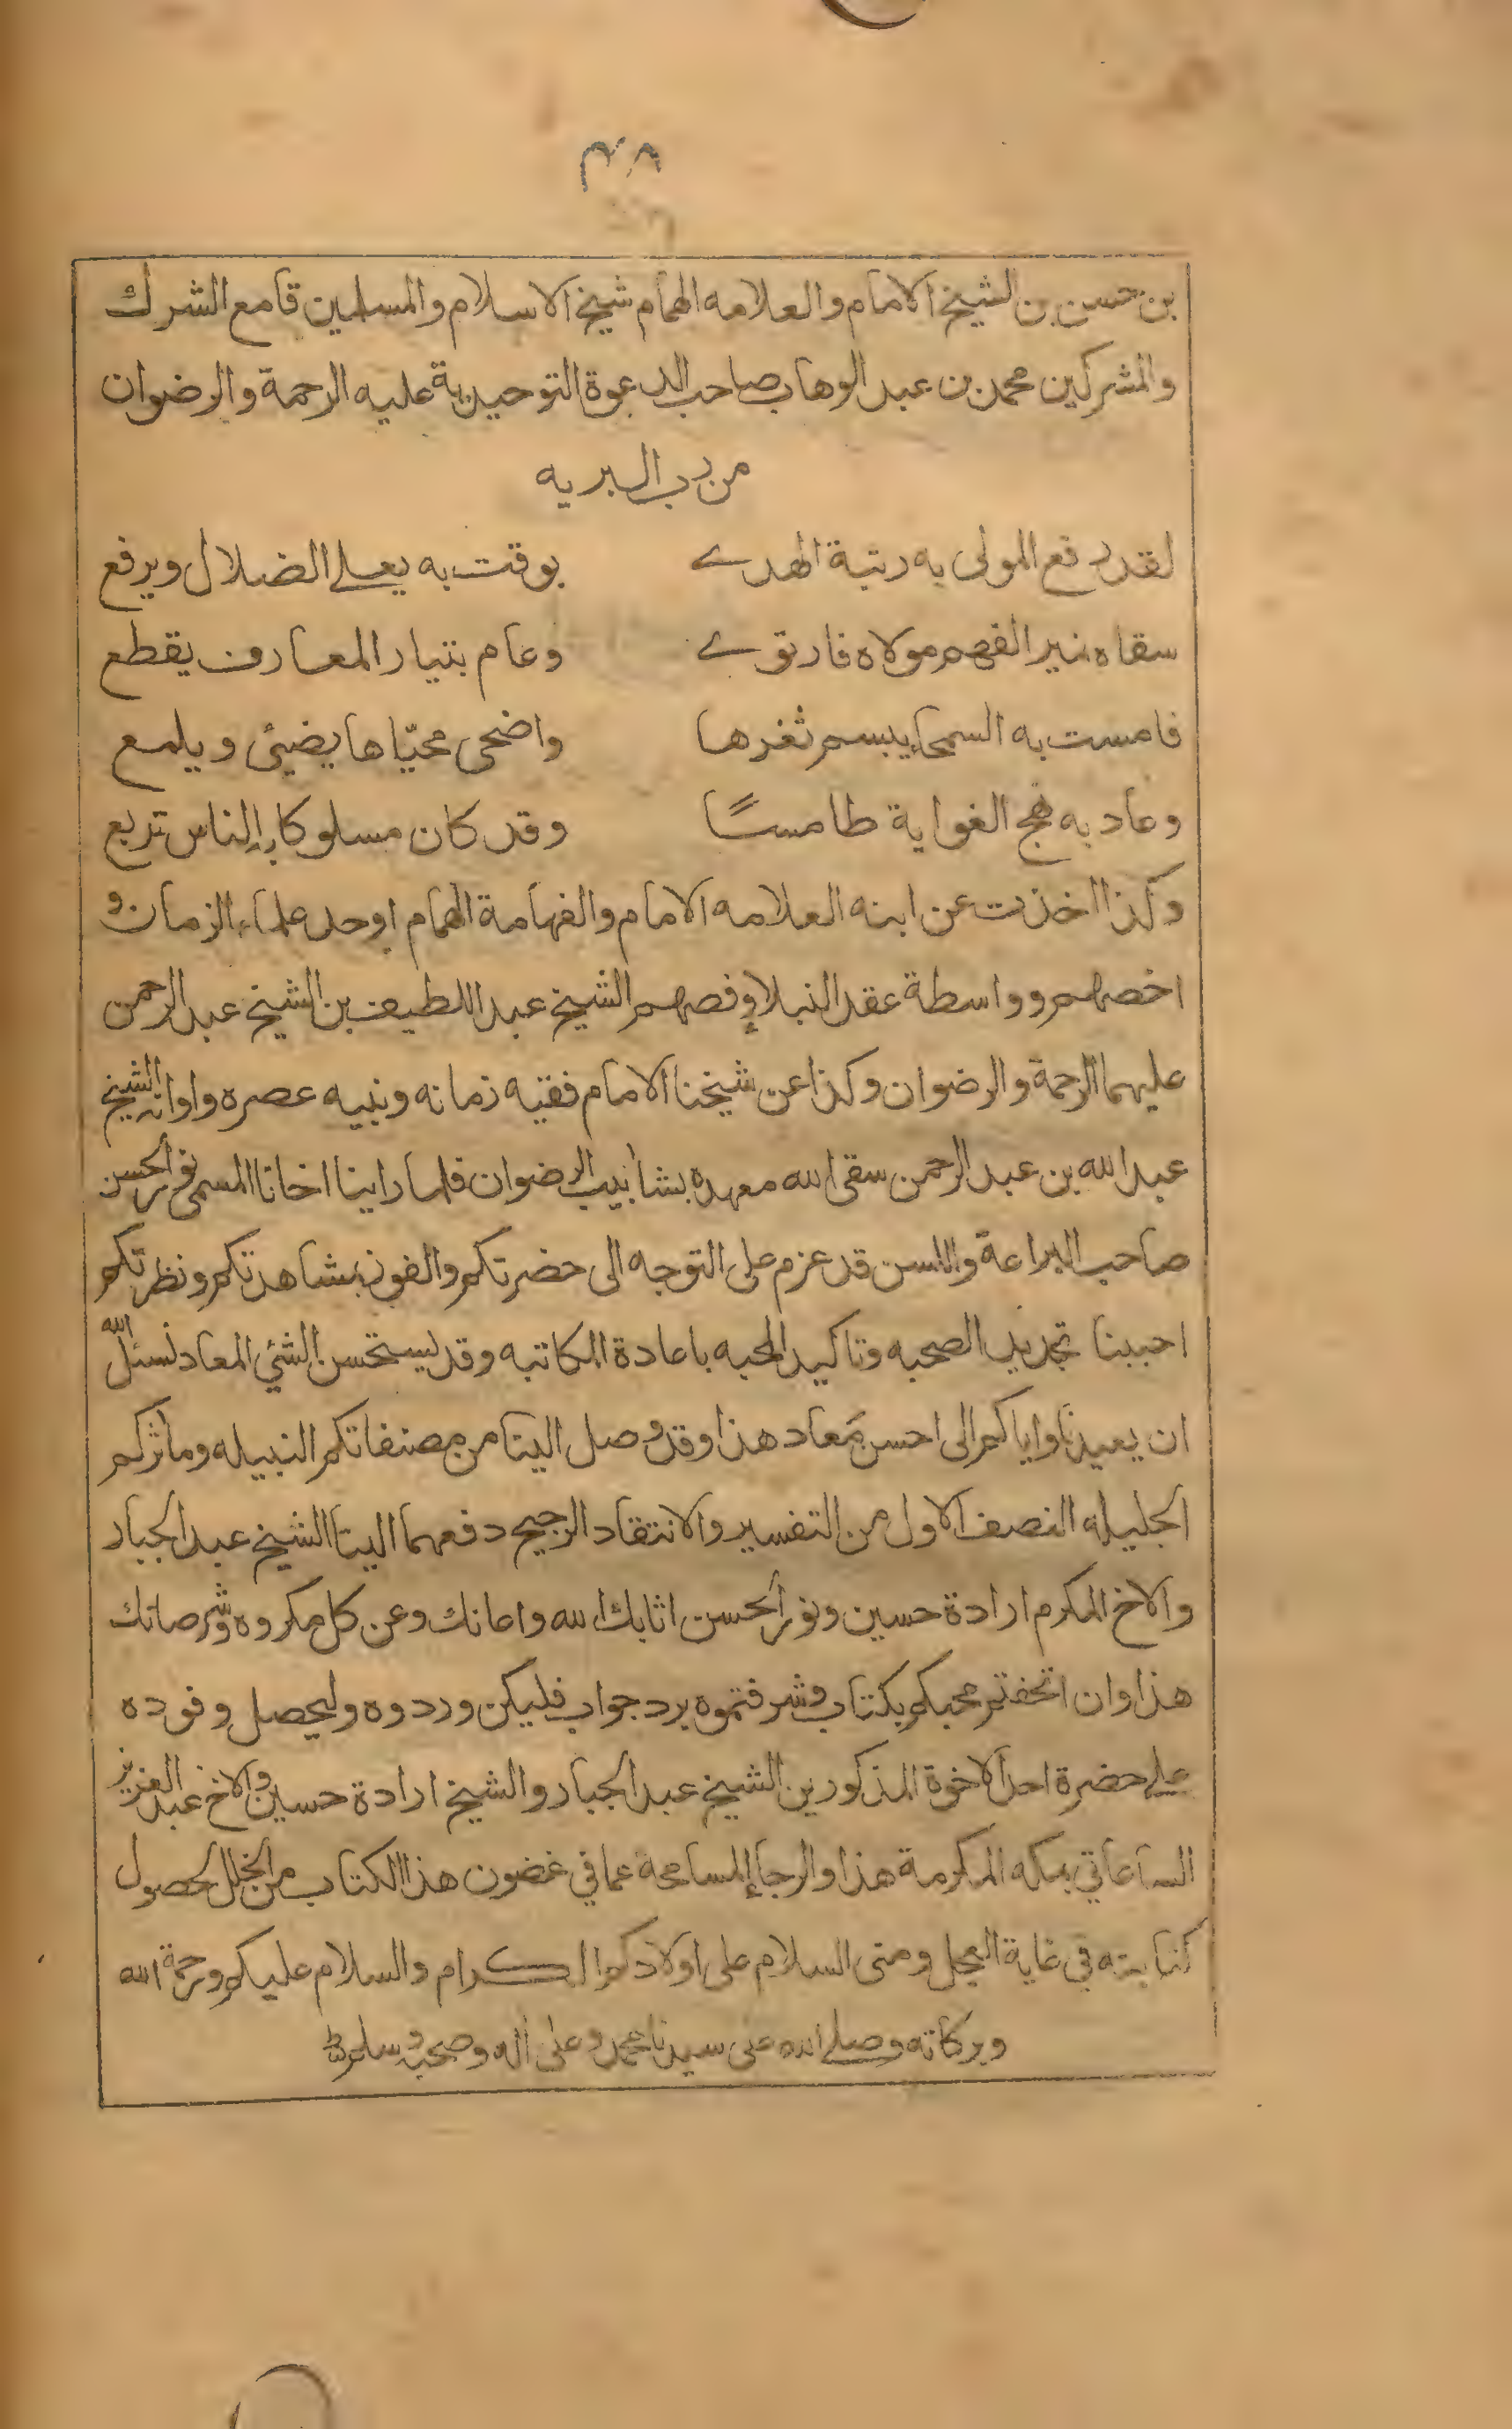 ٣٨
بن حسن بن الشيخ الامام والعلامه الهمام شيخ الاسلام والمسلمين قامع الشرك
والمشركين محمد بن عبد الوهاب صاحب الدعوة التوحيدية عليه الرحمة والرضوان
من رب البريه
لقد رفع المولى به رتبة الهدى بوقت به يعلى الضلال ويرفع
سقاه نمير الفهم مولاه فارتوى وعام بتيار المعارف يقطع
فامست به السمحاء يبسم ثغرها واضحى محيّاها يضيئ ويلمع
وعاد به نهج الغواية طامسًا وقد كان مسلوكا به الناس تربع
وكذا اخذت عن ابنه العلامه الامام والفهامة الهمام اوحد علماء الزمان و
اخصهم وواسطة عقد النبلاء وفصهم الشيخ عبد اللطيف بن الشيخ عبد الرحمن
عليهما الرحمة والرضوان وكذا عن شيخنا الامام فقيه زمانه ونبيه عصره واوانه الشيخ
عبد الله بن عبد الرحمن سقى الله معهده بشأبيب الرضوان فلما راينا اخانا المسمى نور الحسن
صاحب البراعة واللسن قد عزم على التوجه الى حضرتكم والفوز بمشاهدتكم ونظرتكم
احببنا تجديد الصحبه وتاكيد المحبه باعادة المكاتبه وقد يستحسن الشئ المعاد نسئل الله
ان يعيدنا واياكم الى احسن معاد هذا وقد وصل الينا من مصنفاتكم النبيله ومأثركم
الجليله النصف الاول من التفسير والانتقاد الرجيح دفعهما الينا الشيخ عبد الجبار
والاخ المكرم ارادة حسين ونور الحسن اثابك الله واعانك وعن كل مكروه وشر صانك
هذا وان اتحفتم محبكم بكتاب وشرفتموه برد جواب فليكن وردوه وليحصل وفوده
على حضرة احد الاخوة المذكورين الشيخ عبد الجبار والشيخ ارادة حسين والاخ عبد العزيز
الساعاتي بمكه المكرمة هذا والرجاء المسامحة عما في غضون هذا الكتاب من الخلل لحصول
كتابته في غاية العجل ومنى السلام على اولادكم الكرام والسلام عليكم ورحمة الله
وبركاته وصلى الله على سيدنا محمد وعلى أله وصحبه وسلم